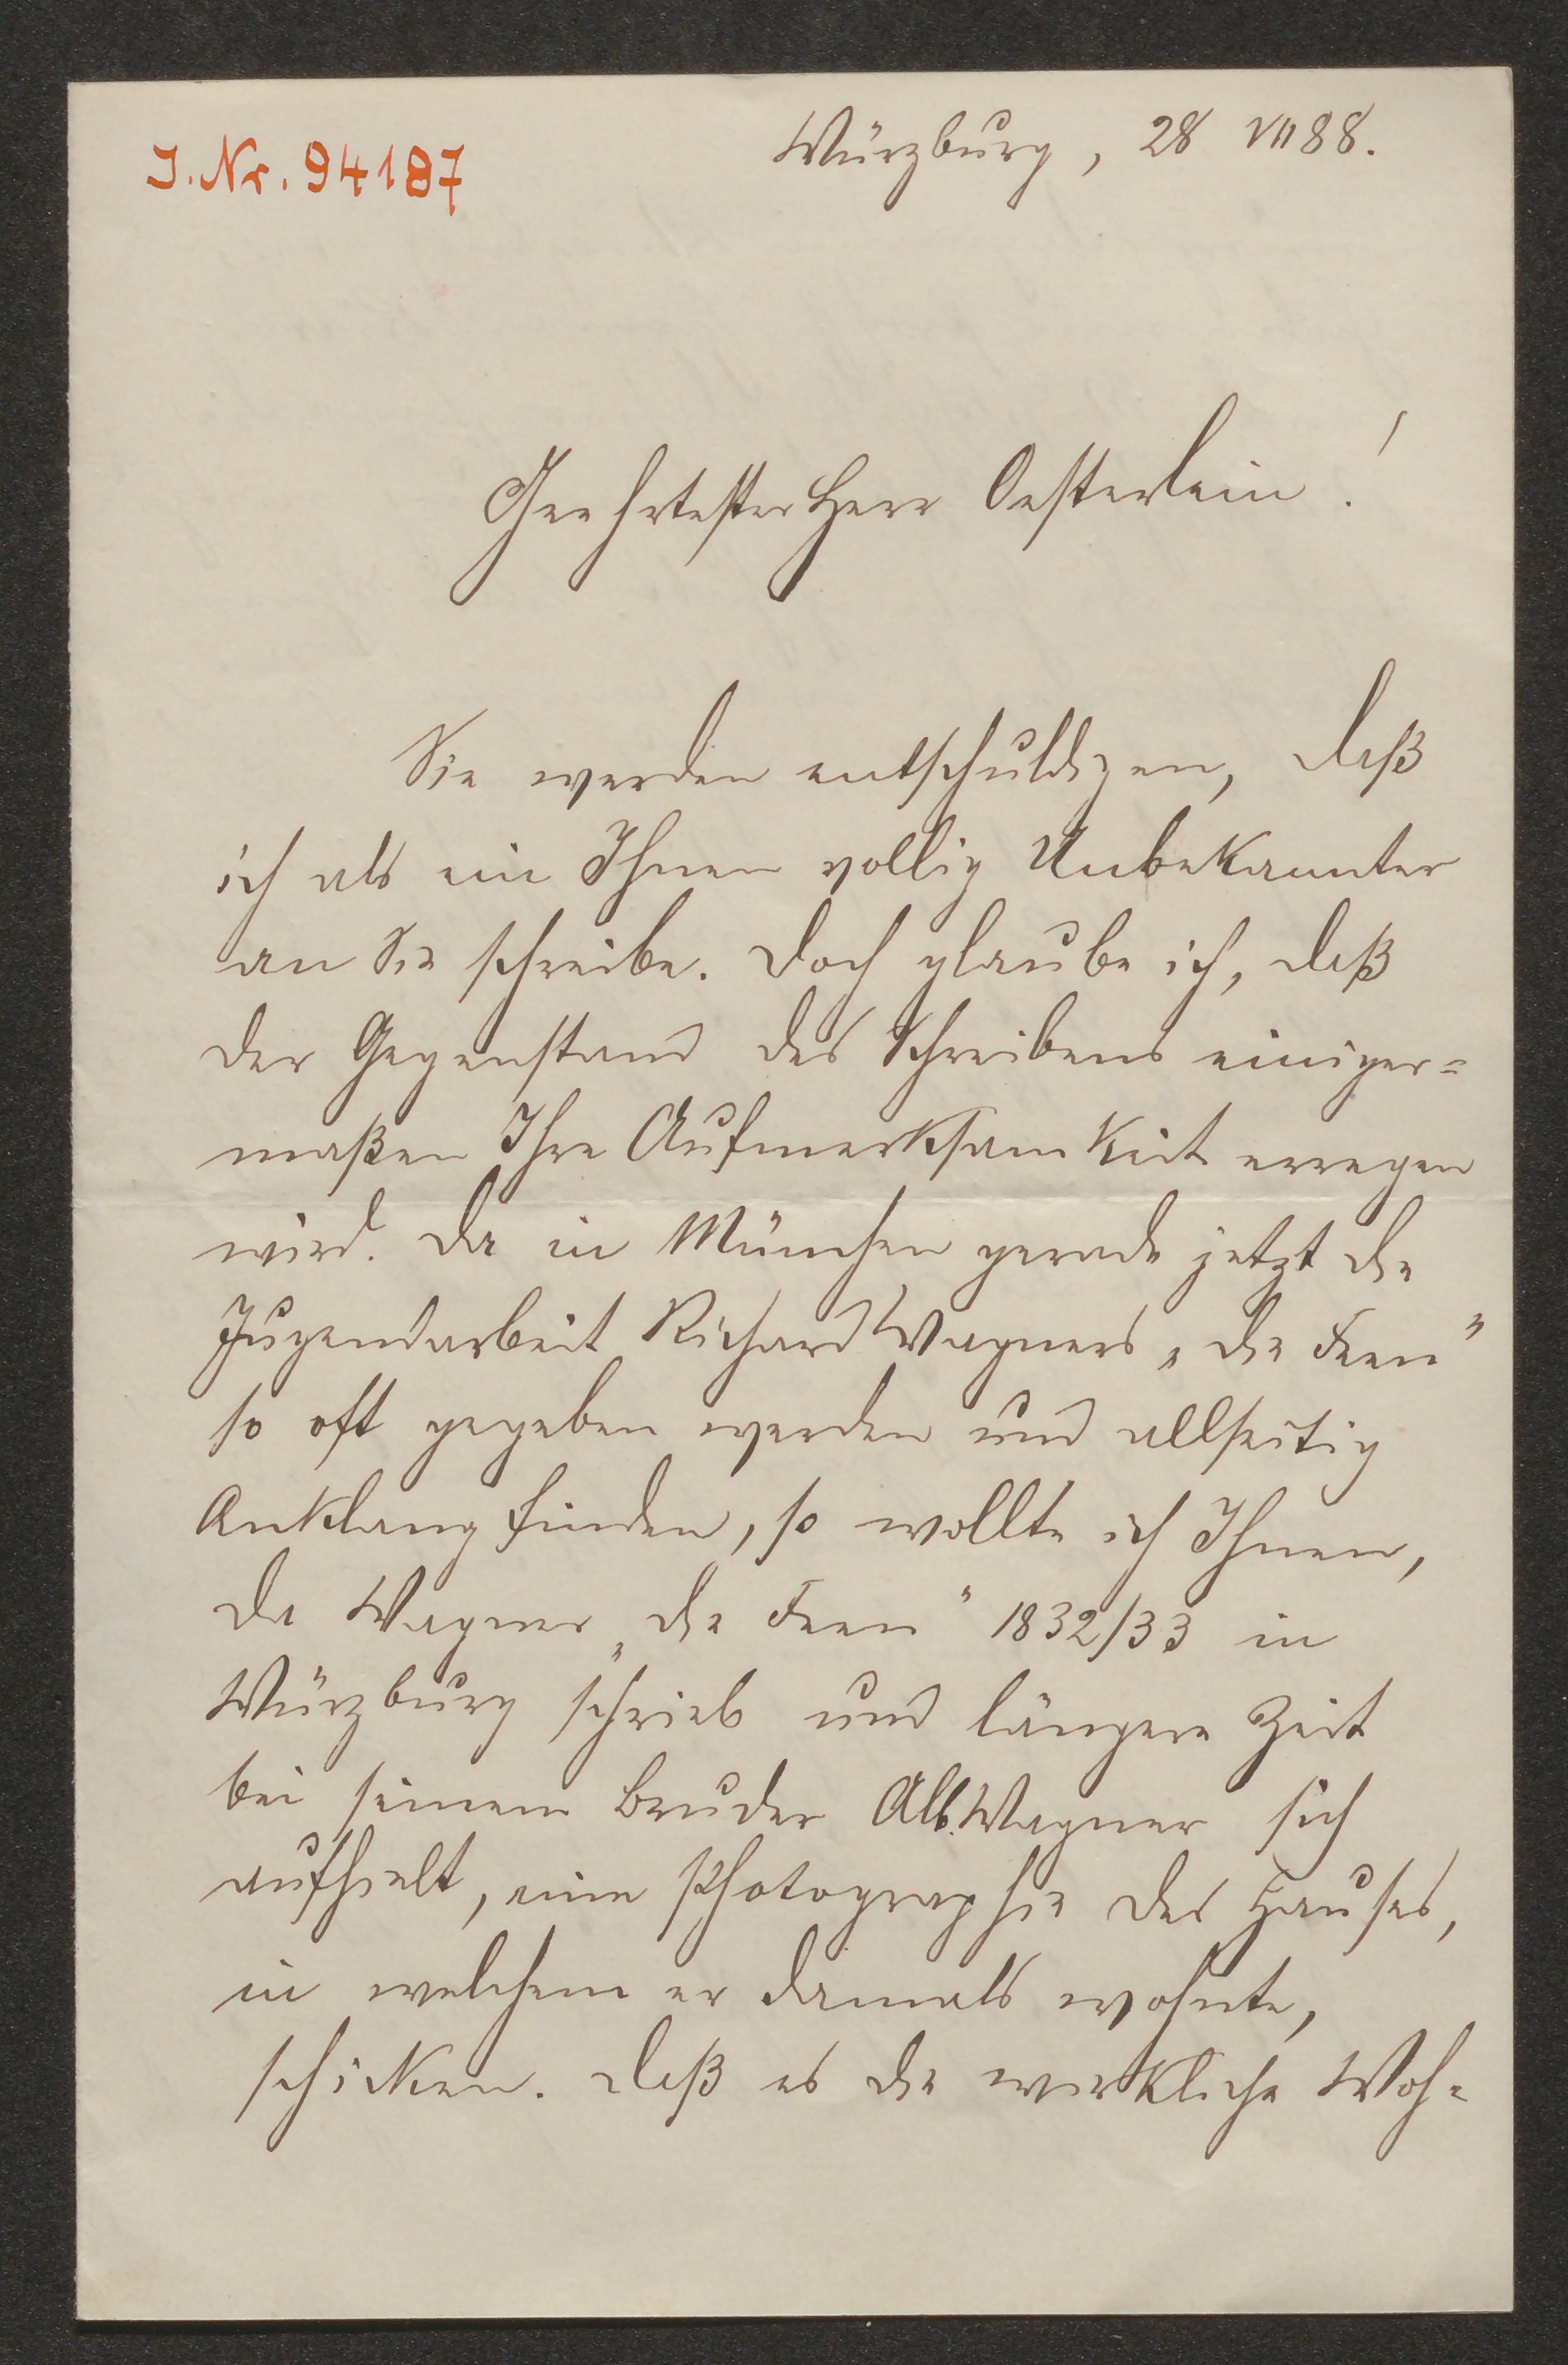 J. Nr. 94187
Würzburg, 28 VII 88.
Geehrtester Herr Oesterlein!
Sie werden entschuldigen, daß
ich als ein Ihnen vollig Unbekannter
an Sie schreibe. Doch glaube ich, daß
der Gegenstand des Schreibens einiger=
maßen Ihre Aufmerksamkeit erregen
wird. Da in München gerade jetzt die
Jugendarbeit Richard Wagners „die Feen"
so oft gegeben werden und allseitig
Anklang finden, so wollte ich Ihnen,
da Wagner „die Feen" 1832/33 in
Würzburg schrieb und längere Zeit
bei seinem Bruder Alb. Wagner sich
aufhielt, eine Photographie des Hauses,
in welchem er damals wohnte,
schicken. Daß es die wirkliche Woh=